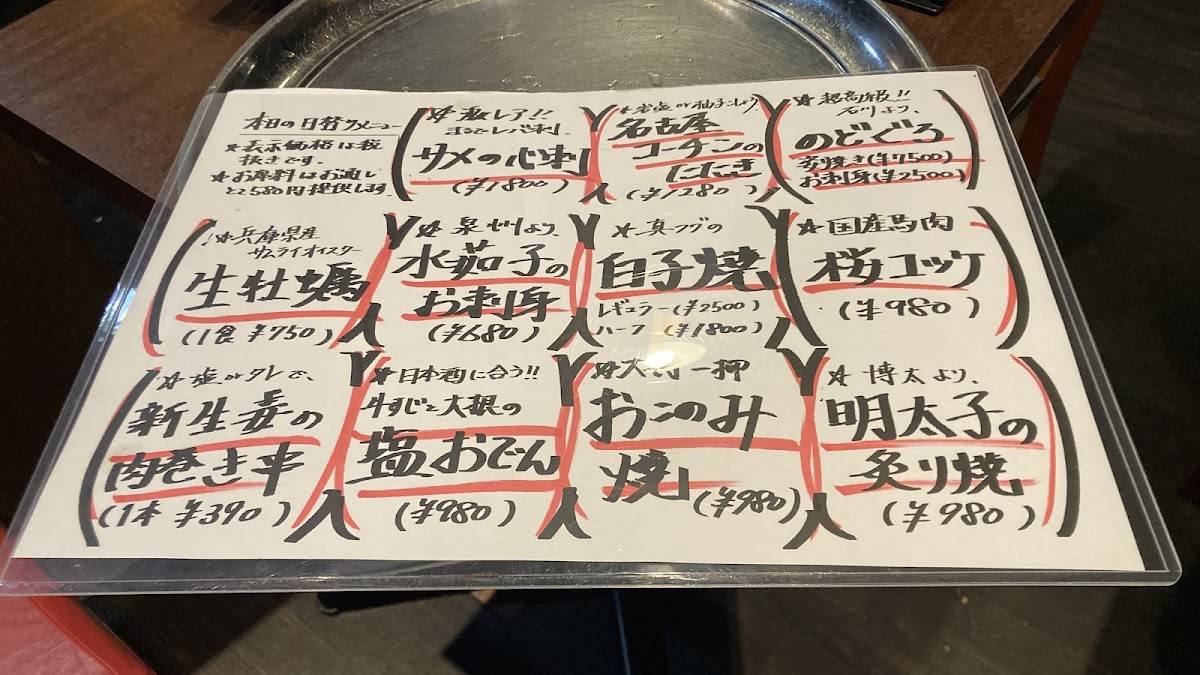 本日の日替りメニュー
☆表示価格は税
抜きです。
☆お席料はお通し
と580円提供します
☆激レア!!
まるでレバ刺
サメの心刺
(¥1800)
☆岩塩or柚子こしょう
名古屋
コーチンの
たたき
(¥1280)
☆超高級!!
石川より、
のどぐろ
炙り焼き(¥7500)
お刺身(¥2500)
☆兵庫県産
サムライオイスター
生牡蠣
(1食¥750)
☆泉州より、
水茄子の
お刺身
(¥680)
☆真フグの
白子焼
レギュラー(¥2500)
ハーフ (¥1800)
☆国産馬肉
桜ユッケ
(¥980)
☆塩orタレで、
新生姜の
肉巻き串
(1本 ¥390)
☆日本酒に合う!!
牛すじと大根の
塩おでん
(¥980)
一押
おこのみ
焼
(¥980)
☆博太より、
明太子の
炙り焼
(¥980)